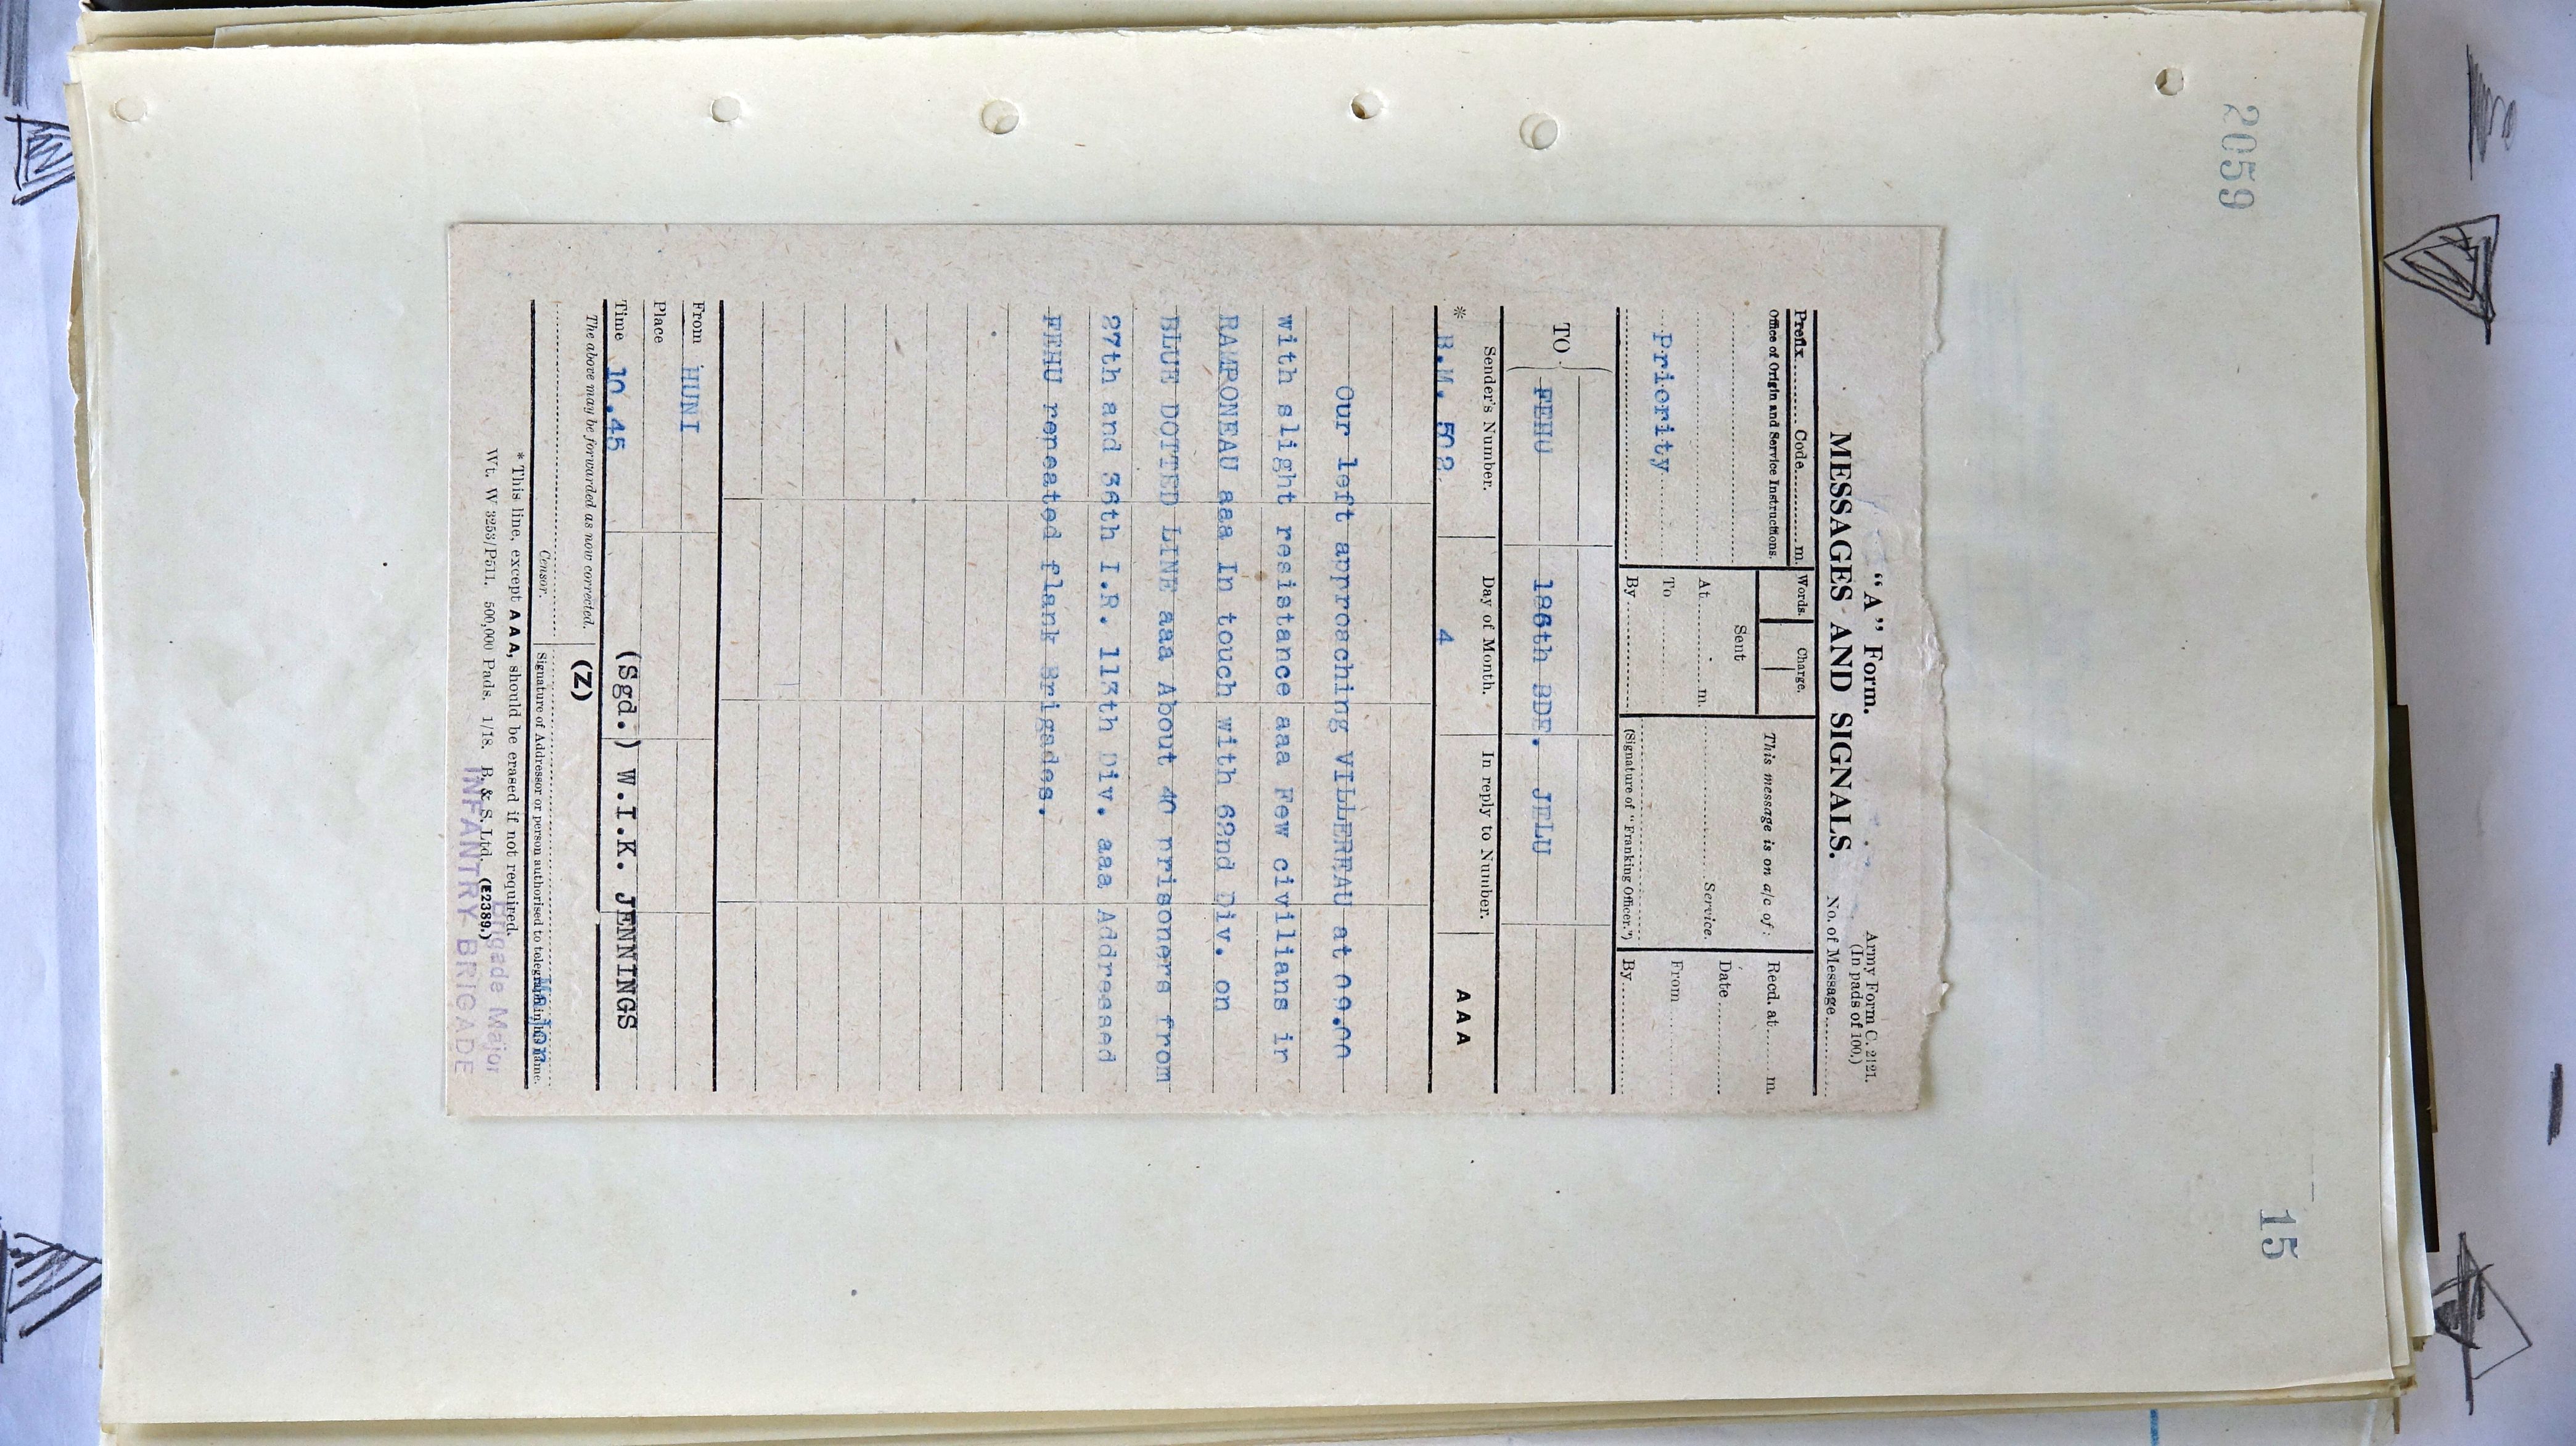 2059
15
"A" Form.
Army Form C. 2121.
(In pads of 100.)
MESSAGES AND SIGNALS.
No. of Message
Prefix Code m.
Words. Charge.
This message is on a/c of:
Recd. at m.
Office of Origin and Service Instructions.
Sent
Date
At m.
Service.
Priority
To
From
By
(Signature of "Franking Officer.")
By
TO
FEHU 186th BDE. JELU
Sender's Number. Day of Month. In reply to Number. AAA
* B.M. 502. 4
Our left approaching VILLEREAU at 09.00
with slight resistance aaa Few civilians in
RAMPONEAU aaa In touch with 62nd Div. on
BLUE DOTTED LINE aaa About 40 prisoners from
27th and 36th I.R. 113th Div. aaa Addressed
FEHU repeated flank Brigades.
From HUNI
Place
Time 10.45
(Sgd.) W.I.K. JENNINGS
The above may be forwarded as now corrected. (Z)
Censor. Signature of Addressor or person authorised to telegraph in his name.
Major
* This line, except AAA, should be erased if not required.
Wt. W 3253/P511. 500,000 Pads. 1/18. B. & S. Ltd. (E2389.)
Brigade Major
INFANTRY BRIGADE